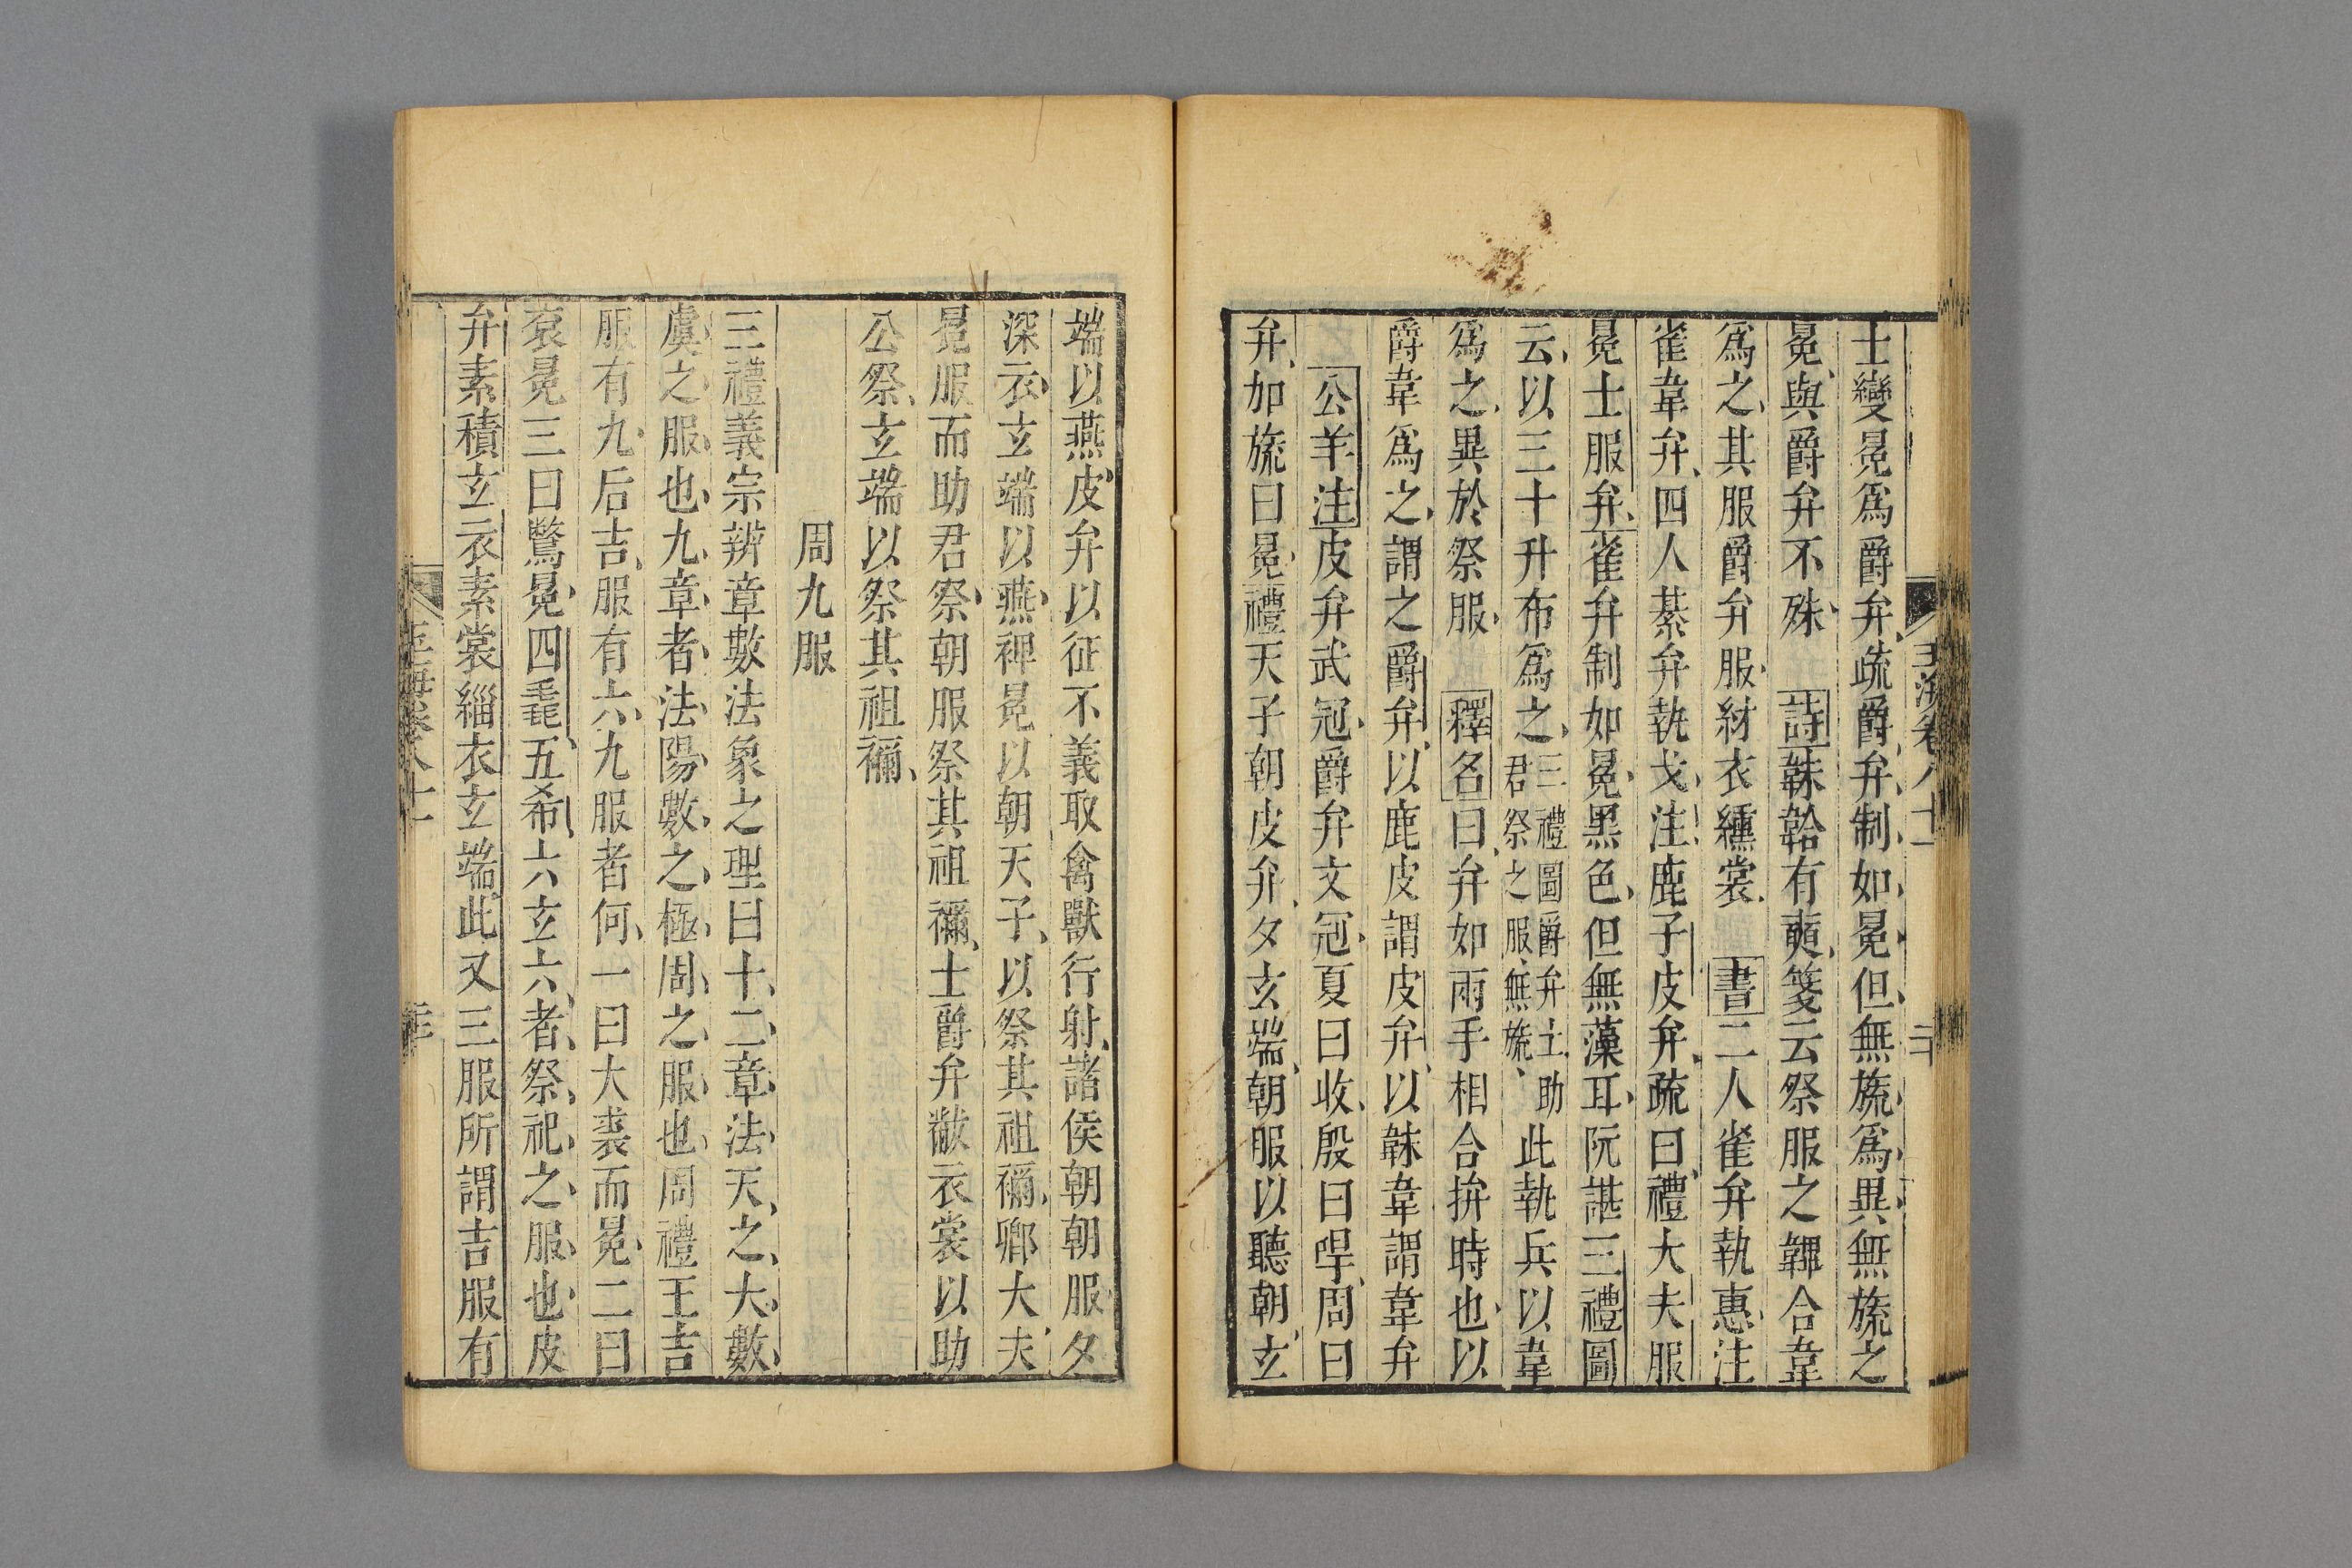 士變冕爲爵弁疏爵弁制如冕但無旒爲異無旒之
冕與爵弁不殊詩韎韐有奭箋云祭服之韠合韋
爲之其服爵弁服紂衣纁裳書二人雀弁執惠注
雀韋弁四人綦弁執戈注鹿子皮弁疏曰禮大夫服
冕士服弁雀弁制如冕黑色但無藻耳阮諶三禮圖
云以三十升布爲之三禮圖爵弁士助君祭之服無旒此執兵以韋
爲之異於祭服釋名曰弁如兩手相合拚時也以
爵韋爲之謂之爵弁以鹿皮謂皮弁以韎韋謂韋弁
公羊注皮弁武冠爵弁文冠夏曰收殷曰哻周曰
弁加旒曰冕禮天子朝皮弁夕玄端朝服以聽朝玄
端以燕皮弁以征不義取禽獸行射諸侯朝朝服夕
深衣玄端以燕裨冕以朝天子以祭其祖禰卿大夫
冕服而助君祭朝服祭其祖禰士爵弁黻衣裳以助
公祭玄端以祭其祖禰
周九服
三禮義宗辨章數法象之理曰十二章法天之大數
虞之服也九章者法陽數之極周之服也周禮王吉
服有九后吉服有六九服者何一曰大裘而冕二曰
袞冕三曰鷩冕四毳五希六玄六者祭祀之服也皮
弁素積玄衣素裳緇衣玄端此又三服所謂吉服有
玉海卷八十一
二十